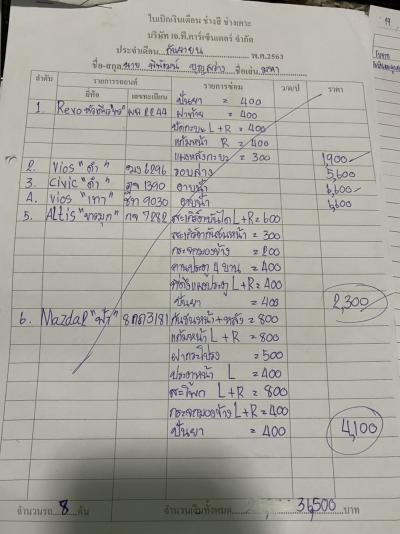 ใบเบิกเงินเดือน ช่างสี ช่างเคาะ
บริษัท เอ.ที.คาร์เซ็นเตอร์ จำกัด
ประจำเดือน กันยายน พ.ศ.2563
ชื่อ-สกุล นาย ชื่อเล่น
ลำดับ รายการรถยนต์ รายการซ่อม ว/ด/ป ราคา
ยี่ห้อ เลขทะเบียน
1. Revo 2244 ปั่นยา = 400
ฝาท้าย = 400
L+R = 400
แก้มหน้า R = 400
= 300 1,900
2. Vios "ดำ" 6296 รอบล่าง 5,600
3. Civic "ดำ" 1390 อาบน้ำ 6,600
4. Vios "เทา" 9030 อาบน้ำ 6,600
5. Altis 7282 สเกิร์ตบันได L+R = 600
= 300
กระจกมองข้าง = 200
4 บาน = 400
L+R = 400
ปั่นยา = 400 2,300
6. Mazda2 "ฟ้า" 8กด3181 กันชนหน้า+หลัง = 800
แก้มหน้า L+R = 800
ฝากระโปรง = 500
ประตูหน้า L = 400
สะโพก L+R = 800
กระจกมองข้าง L+R = 400
ปั่นยา = 400 4,100
จำนวนรถ 8 คัน จำนวนเงินทั้งหมด 36,500 บาท